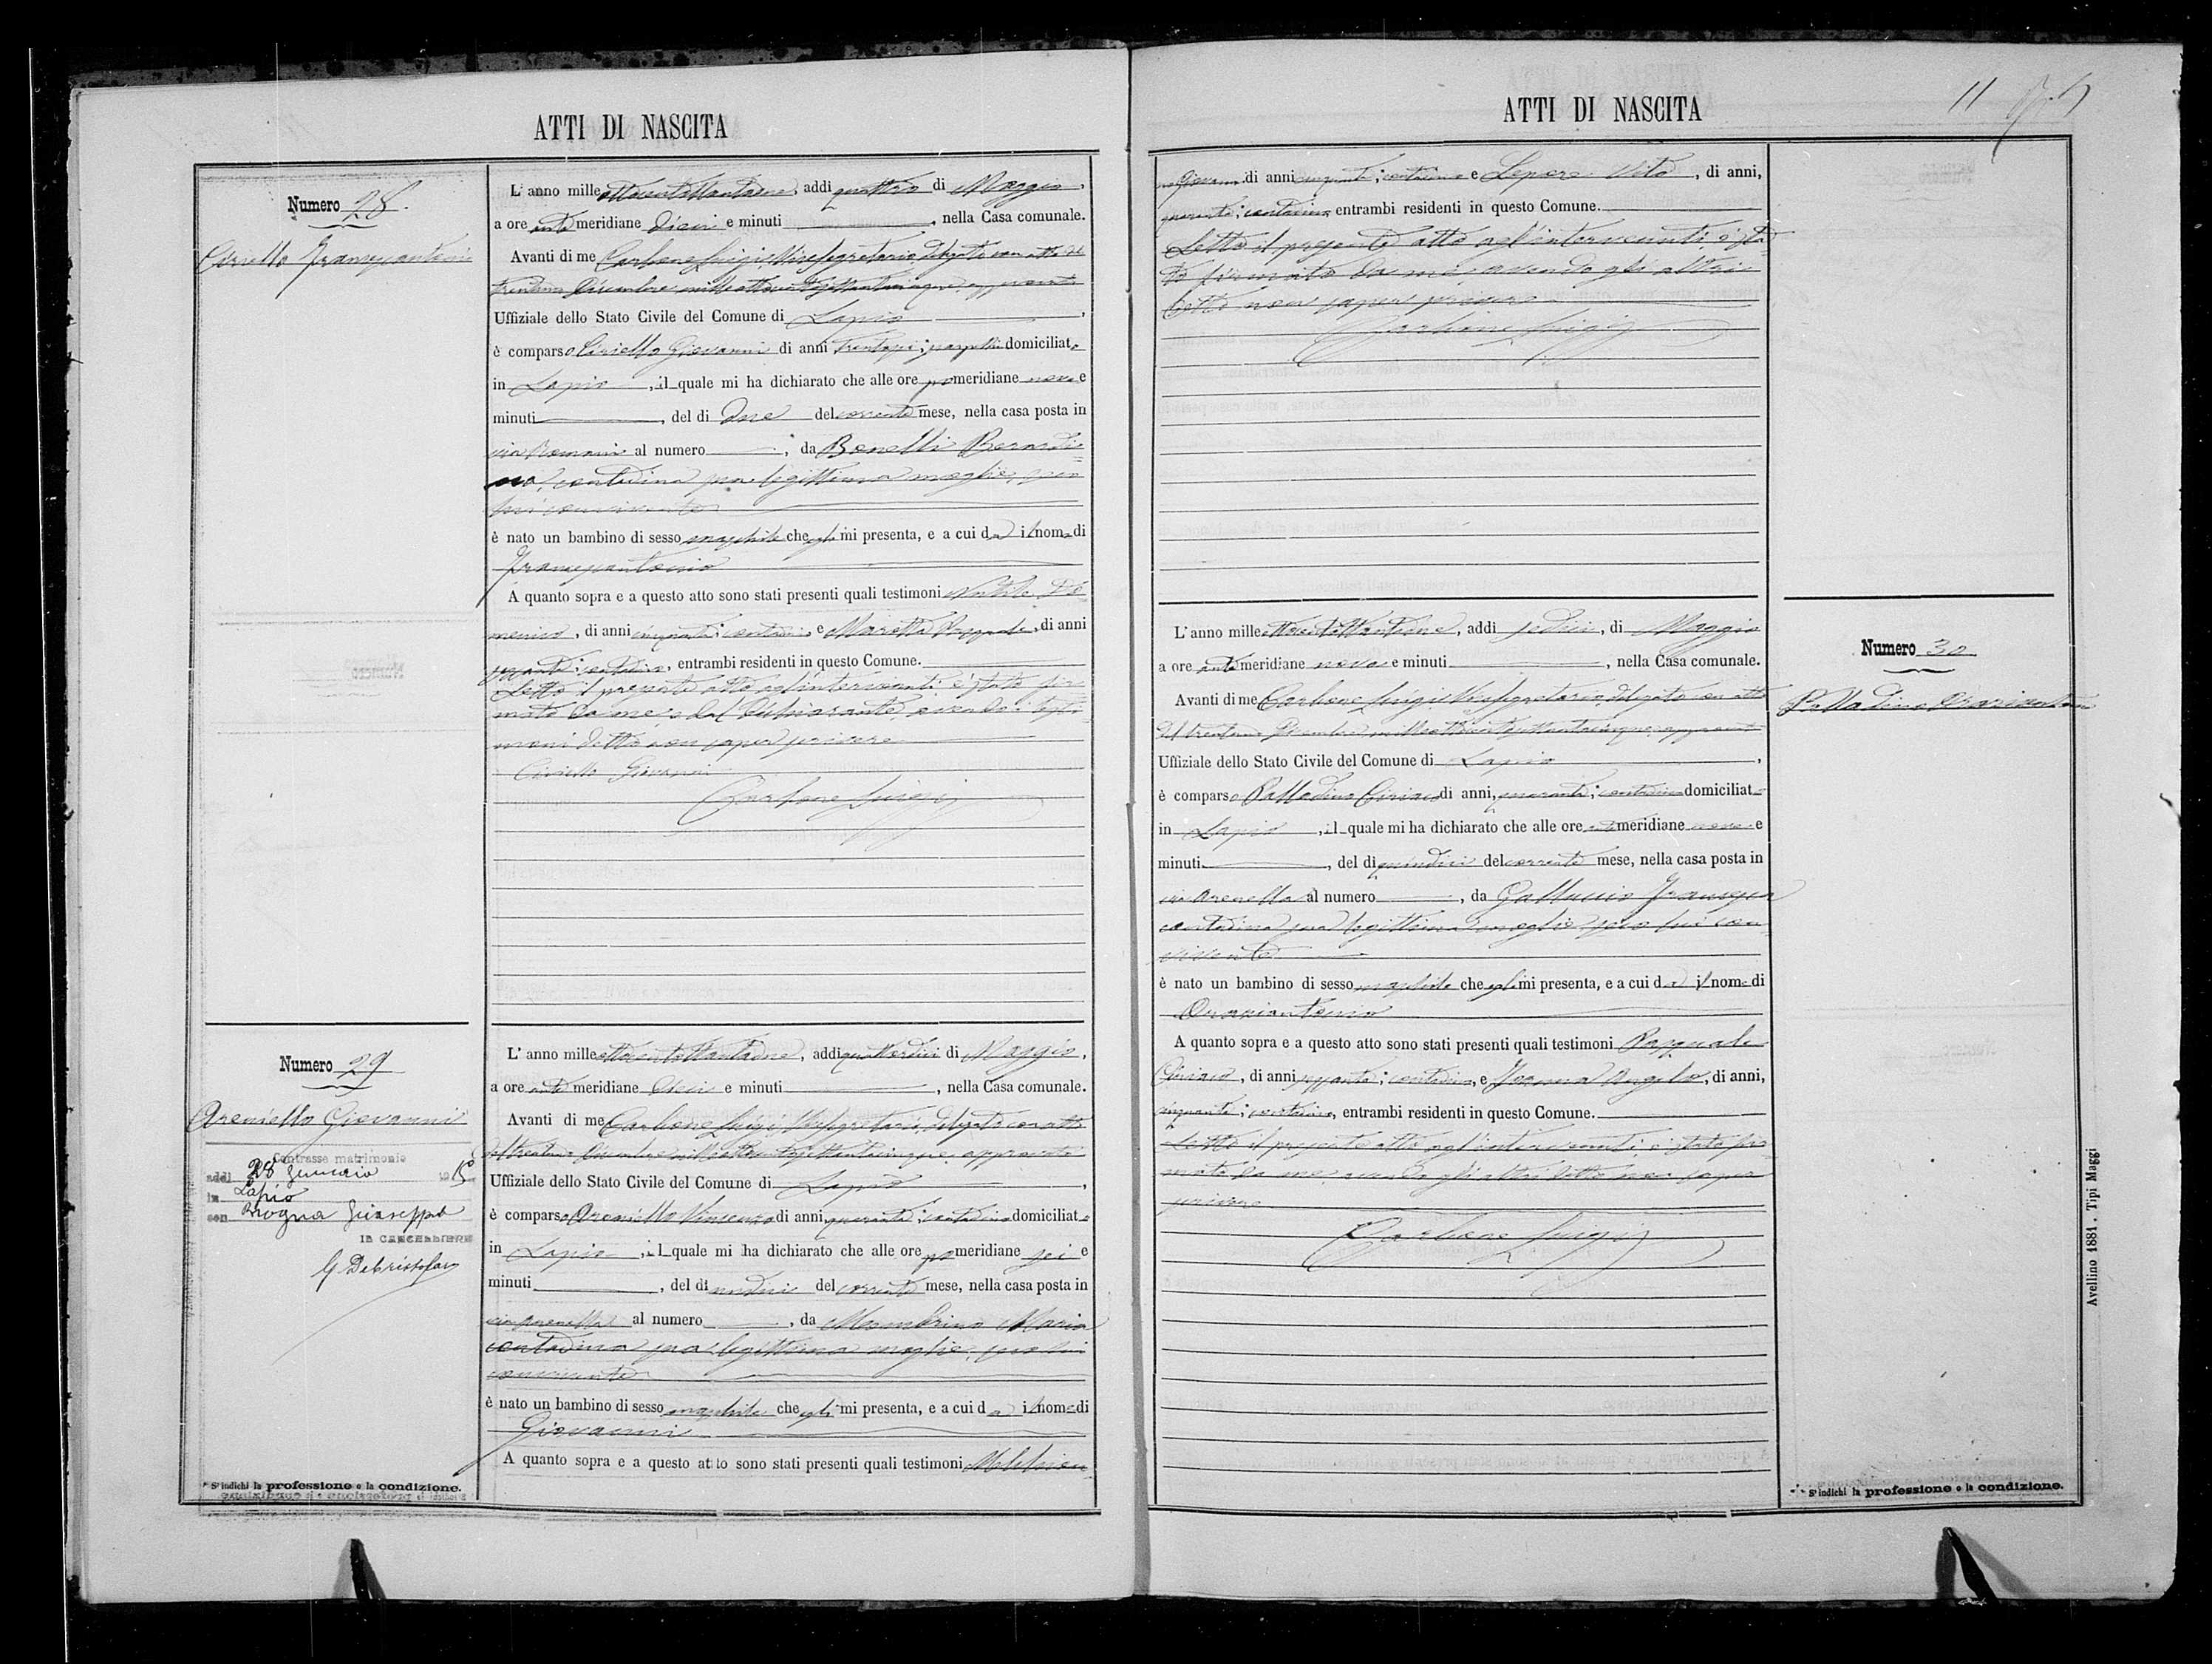 ATTI DI NASCITA
Numero 28.
Ciriello Francescantonio
L'anno milleottocentottantadue, addi quattro di Maggio,
a ore antimeridiane dieci e minuti, nella Casa comunale.
Avanti di me Carbone Luigi, Vicesegretario delegato con atto del
trentuno Dicembre mille ottocentosettantacinque, approvato
Uffiziale dello Stato Civile del Comune di Lapio,
è comparso Ciriello Giovanni di anni trentasei; domiciliato
in Lapio, il quale mi ha dichiarato che alle ore pomeridiane nove e
minuti, del di due del corrente mese, nella casa posta in
via Romani al numero, da Bonelli Bernardi
na, contadina sua legittima moglie, seco
lui convivente
è nato un bambino di sesso maschile che egli mi presenta, e a cui dà il nome di
Francescantonio
A quanto sopra e a questo atto sono stati presenti quali testimoni Do
menico, di anni cinquanta; contadino e Pasquale, di anni
contadino, entrambi residenti in questo Comune.
Letto il presente atto agl'intervenuti è stato fir
mato da me e dal dichiarante, avendo i testi
moni detto non saper scrivere
Ciriello Giovanni
Carbone Luigi
Numero 29
Areniello Giovanni
Contrasse matrimonio
addì 28 Gennaio 19
in Lapio
con Brogna Giuseppa
IL CANCELLIERE
G Decristofaro
L'anno milleottocentottantadue, addi quattordici di Maggio,
a ore antimeridiane dieci e minuti, nella Casa comunale.
Avanti di me Carbone Luigi, Vicesegretario delegato con atto
del trentuno Dicembre milleottocentosettantacinque, approvato
Uffiziale dello Stato Civile del Comune di Lapio,
è comparso Areniello Vincenzo di anni quaranta; contadino domiciliato
in Lapio, il quale mi ha dichiarato che alle ore pomeridiane sei e
minuti, del di undici del corrente mese, nella casa posta in
via Arenella al numero, da Mombrino Maria
contadina sua legittima moglie, seco lui
convivente
è nato un bambino di sesso maschile che egli mi presenta, e a cui dà il nome di
Giovanni
A quanto sopra e a questo atto sono stati presenti quali testimoni
* S'indichi la professione o la condizione.
ATTI DI NASCITA
11
Giovanni di anni cinquanta; contadino e Lepore Vito, di anni,
quaranta; contadino, entrambi residenti in questo Comune.
Letto il presente atto agl'intervenuti, è sta
to firmato da me, avendo gli altri
detto non saper scrivere
Carbone Luigi
L'anno milleottocentottantadue, addi sedici, di Maggio
a ore antimeridiane nove e minuti, nella Casa comunale.
Avanti di me Carbone Luigi Vicesegretario delegato con atto
del trentuno Dicembre milleottocentosettantacinque, approvato
Uffiziale dello Stato Civile del Comune di Lapio,
è comparso Palladino Ciriaco di anni, quaranta; contadino domiciliato
in Lapio, il quale mi ha dichiarato che alle ore antimeridiane nove e
minuti, del di quindici del corrente mese, nella casa posta in
via Arenella al numero, da Galluccio Francesca
contadina sua legittima moglie seco lui con
vivente
è nato un bambino di sesso maschile che egli mi presenta, e a cui dà il nome di
Oraziantonio
A quanto sopra e a questo atto sono stati presenti quali testimoni Pasquale
Ciriaco, di anni sessanta; contadino, e Angelo, di anni,
cinquanta; contadino, entrambi residenti in questo Comune.
Letto il presente atto agl'intervenuti, è stato fir
mato da me, avendo gli altri detto non saper
scrivere
Carbone Luigi
Numero 30
Palladino Oraziantonio
* S'indichi la professione o la condizione.
Avellino 1881. Tipi Maggi